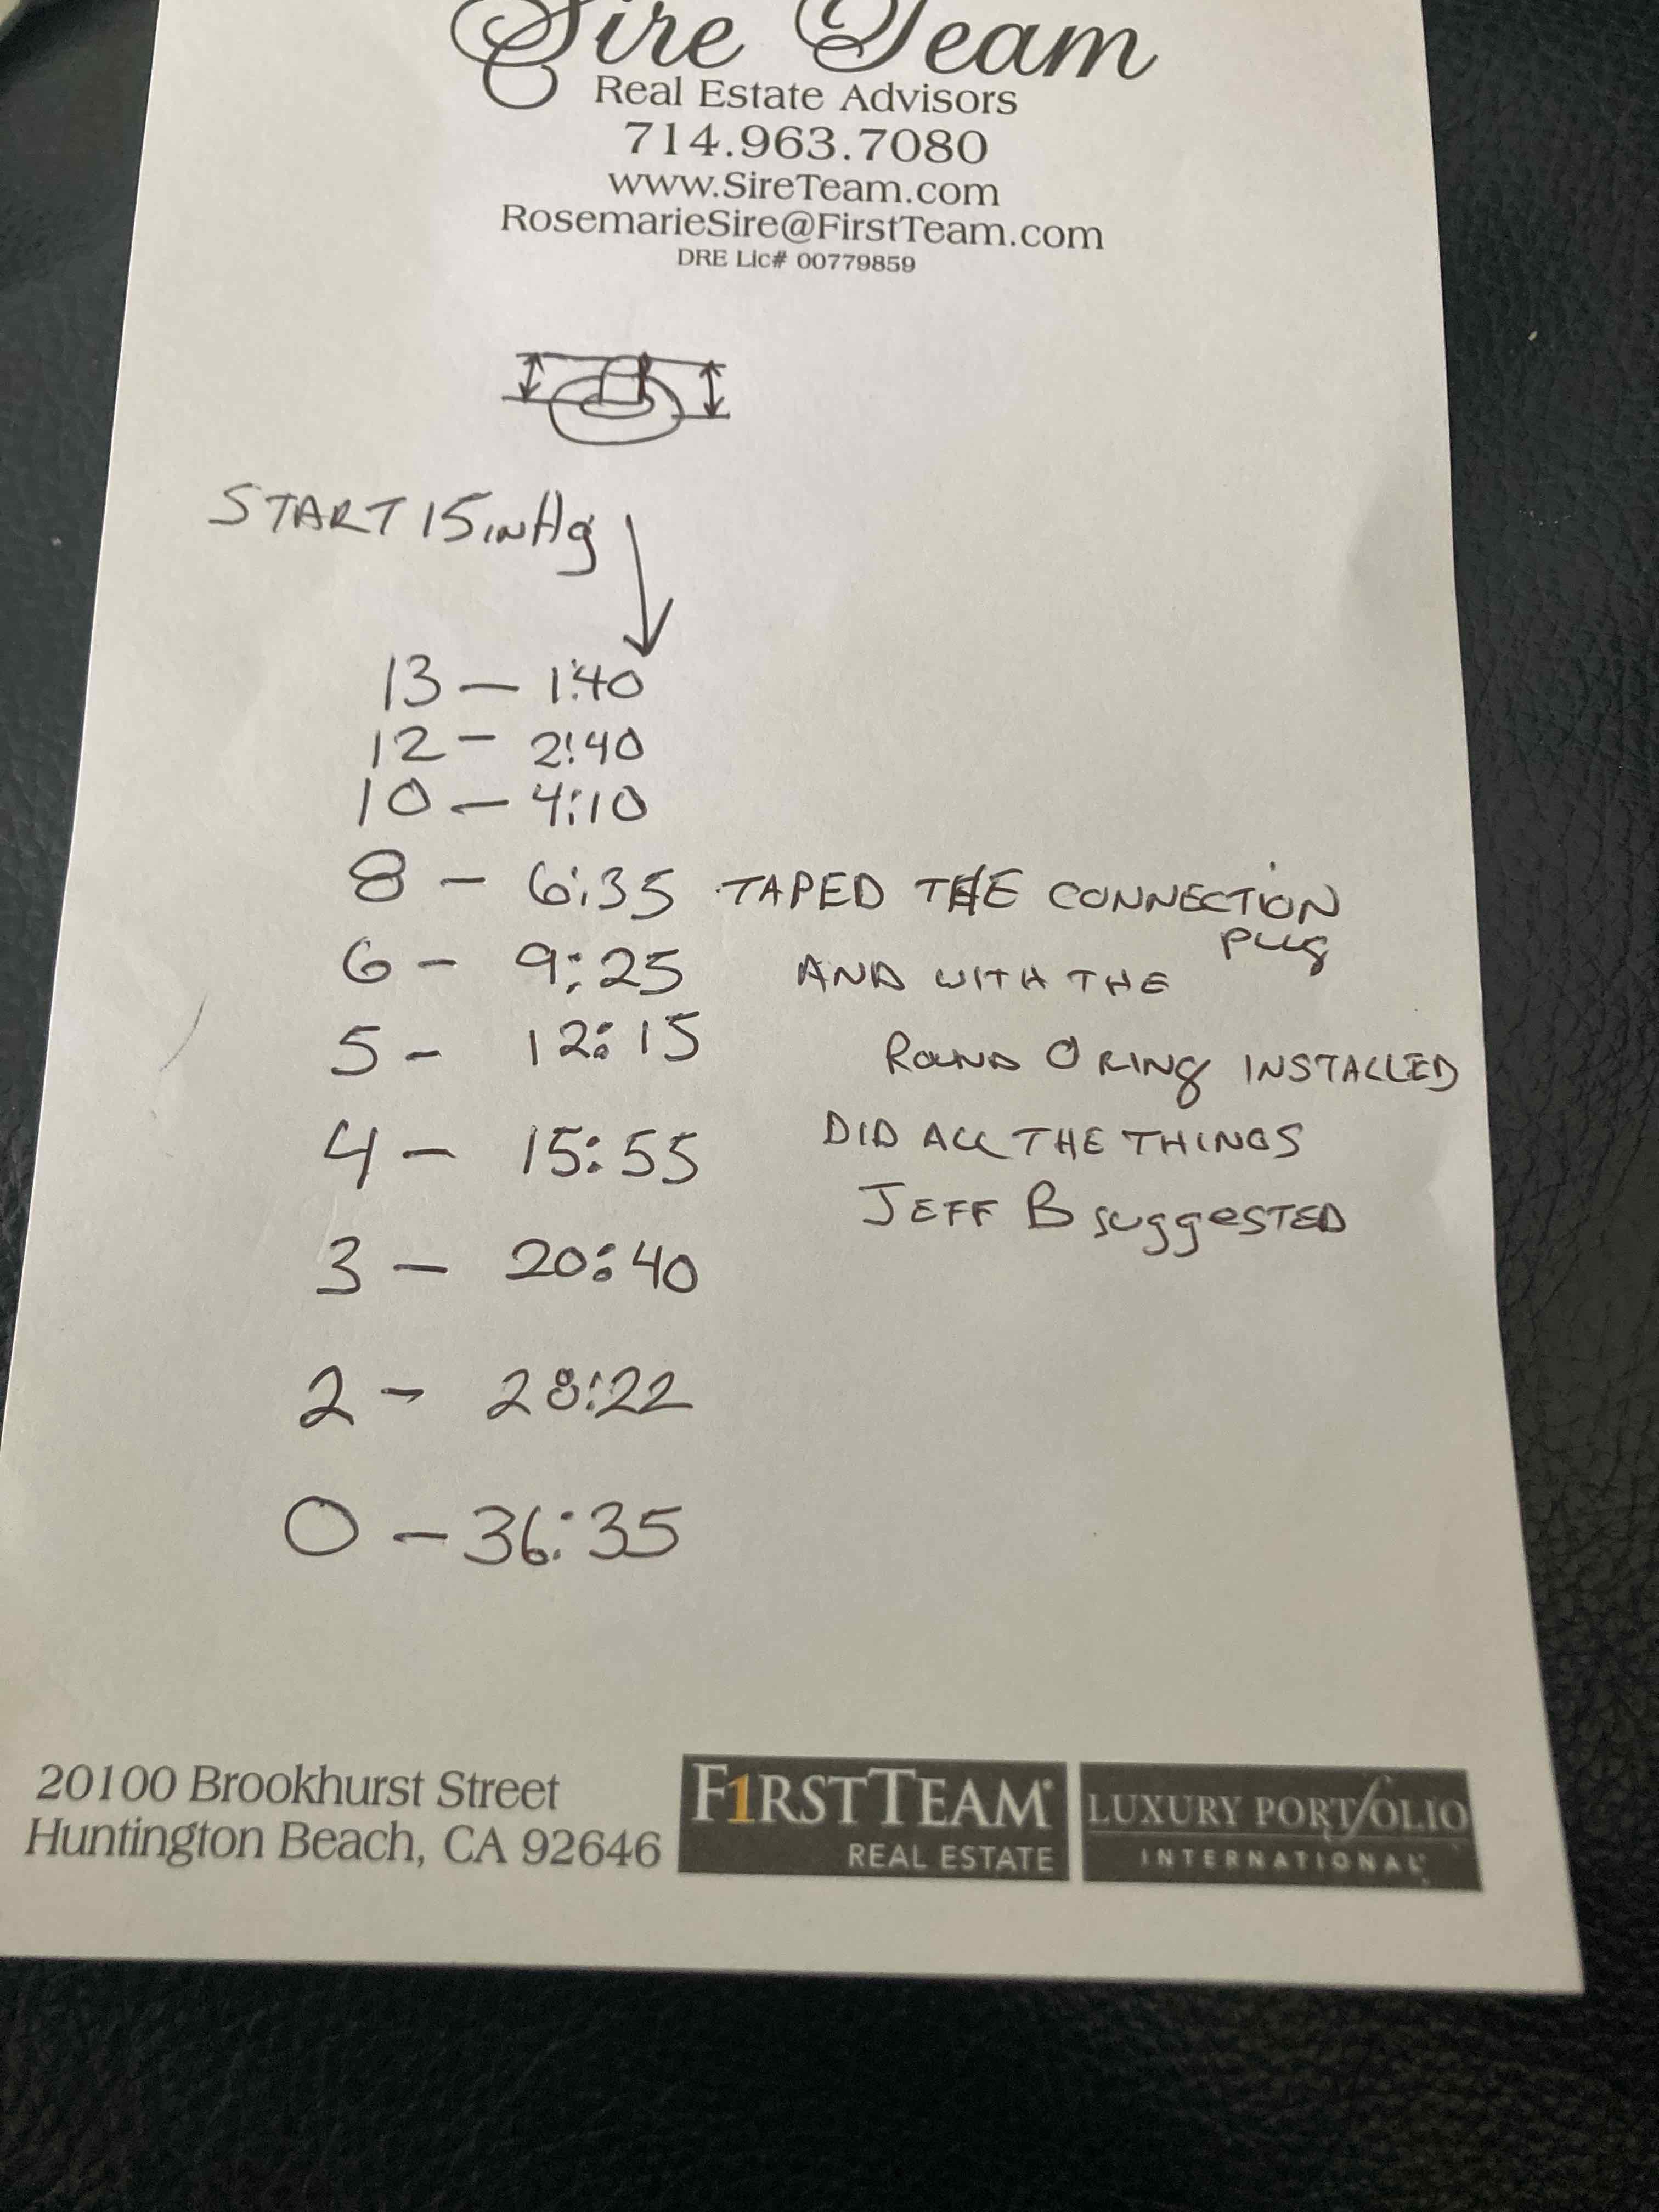 Sire Team
Real Estate Advisors
714.963.7080
www.SireTeam.com
RosemarieSire@FirstTeam.com
DRE Lic# 00779859
START 15 inHg
13 — 1:40
12 — 2:40
10 — 4:10
8 — 6:35 TAPED THE CONNECTION
plug
6 — 9:25 AND WITH THE
5 - 12:15 ROUND O RING INSTALLED
4 — 15:55 DID ALL THE THINGS
JEFF B suggESTED
3 — 20:40
2 - 28:22
0 — 36:35
20100 Brookhurst Street
Huntington Beach, CA 92646
F1RSTTEAM®
REAL ESTATE
LUXURY PORTFOLIO
INTERNATIONAL